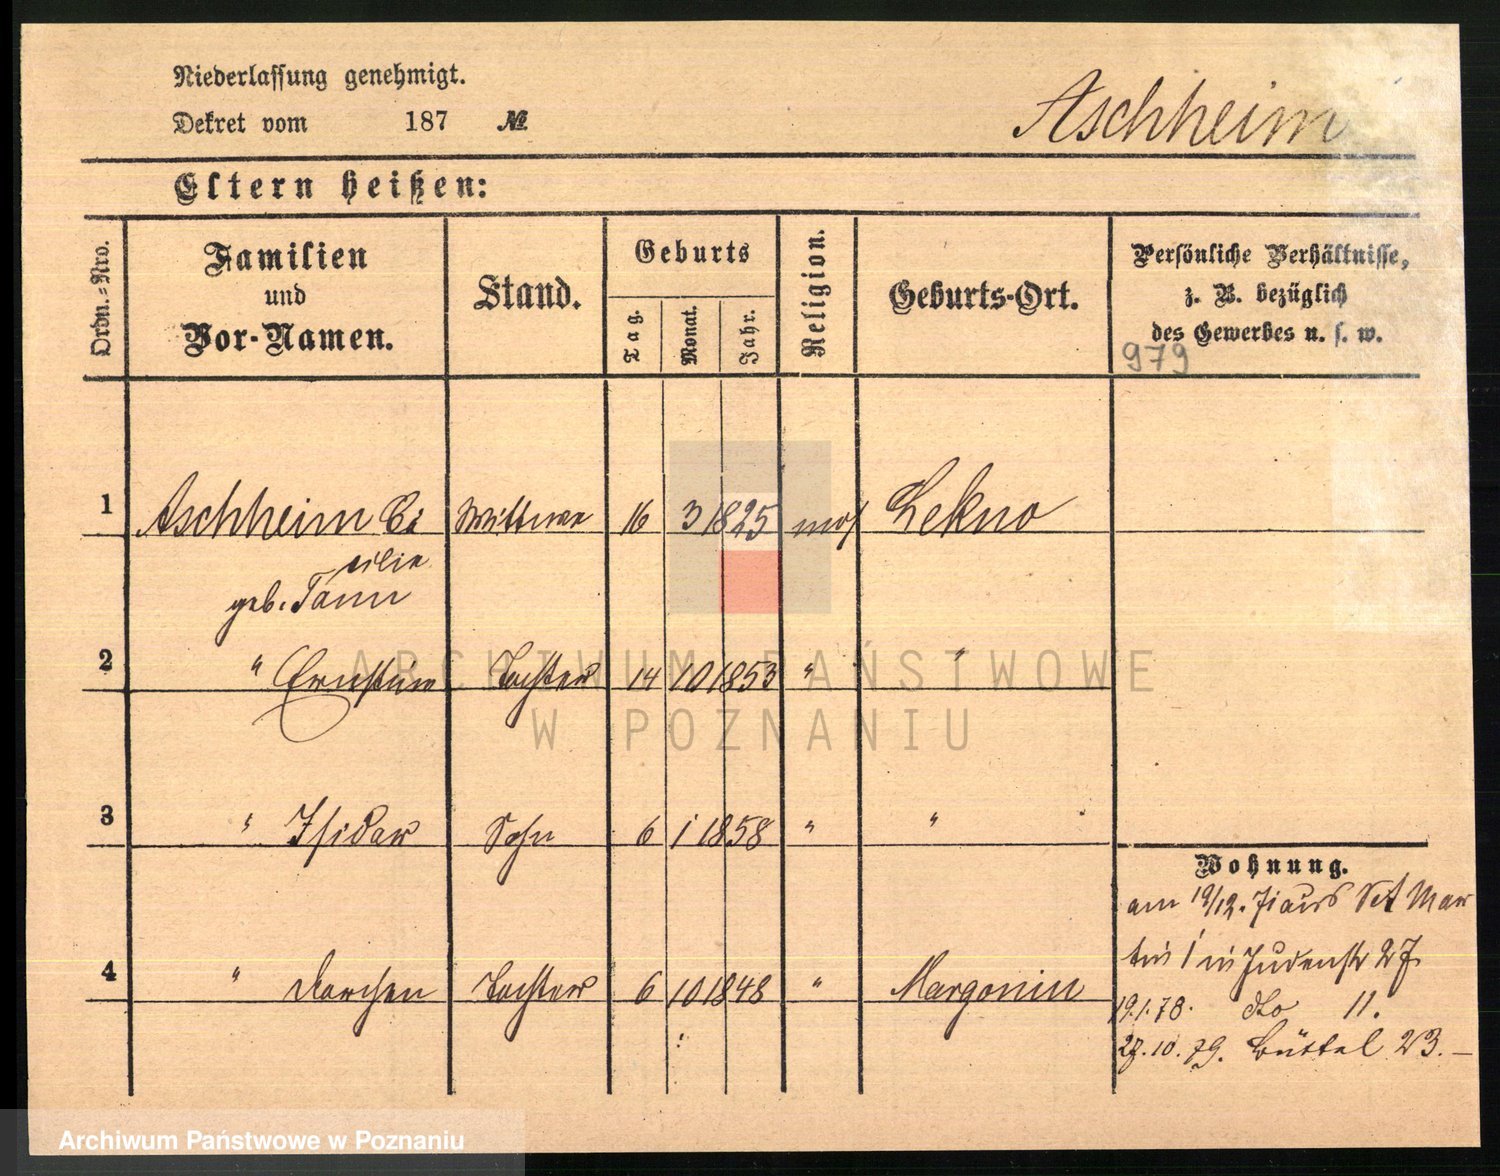 Niederlassung genehmigt.
Dekret vom 187 №
Aschheim
Eltern heißen:
Ordn.-Nro.
Familien
und
Vor-Namen.
Stand.
Geburts
Tag.
Monat.
Jahr.
Religion.
Geburts-Ort.
Persönliche Verhältnisse,
z. B. bezüglich
des Gewerbes u. s. w.
979
1 Aschheim Cä Wittwe 16 3 1825 mos Lekno
cilie
geb. Tann
2 " Ernstine Tochter 14 10 1853 " "
3 " Isidor Sohn 6 1 1858 " "
4 " Dorchen Tochter 6 10 1848 " Margonin
Wohnung.
am 19/12. 71 aus Sct Mar
tin 1 in Judenstr 27
19.1.78. dto 11.
28.10.79. Büttel 23. –
ARCHIWUM PAŃSTWOWE
W POZNANIU
Archiwum Państwowe w Poznaniu